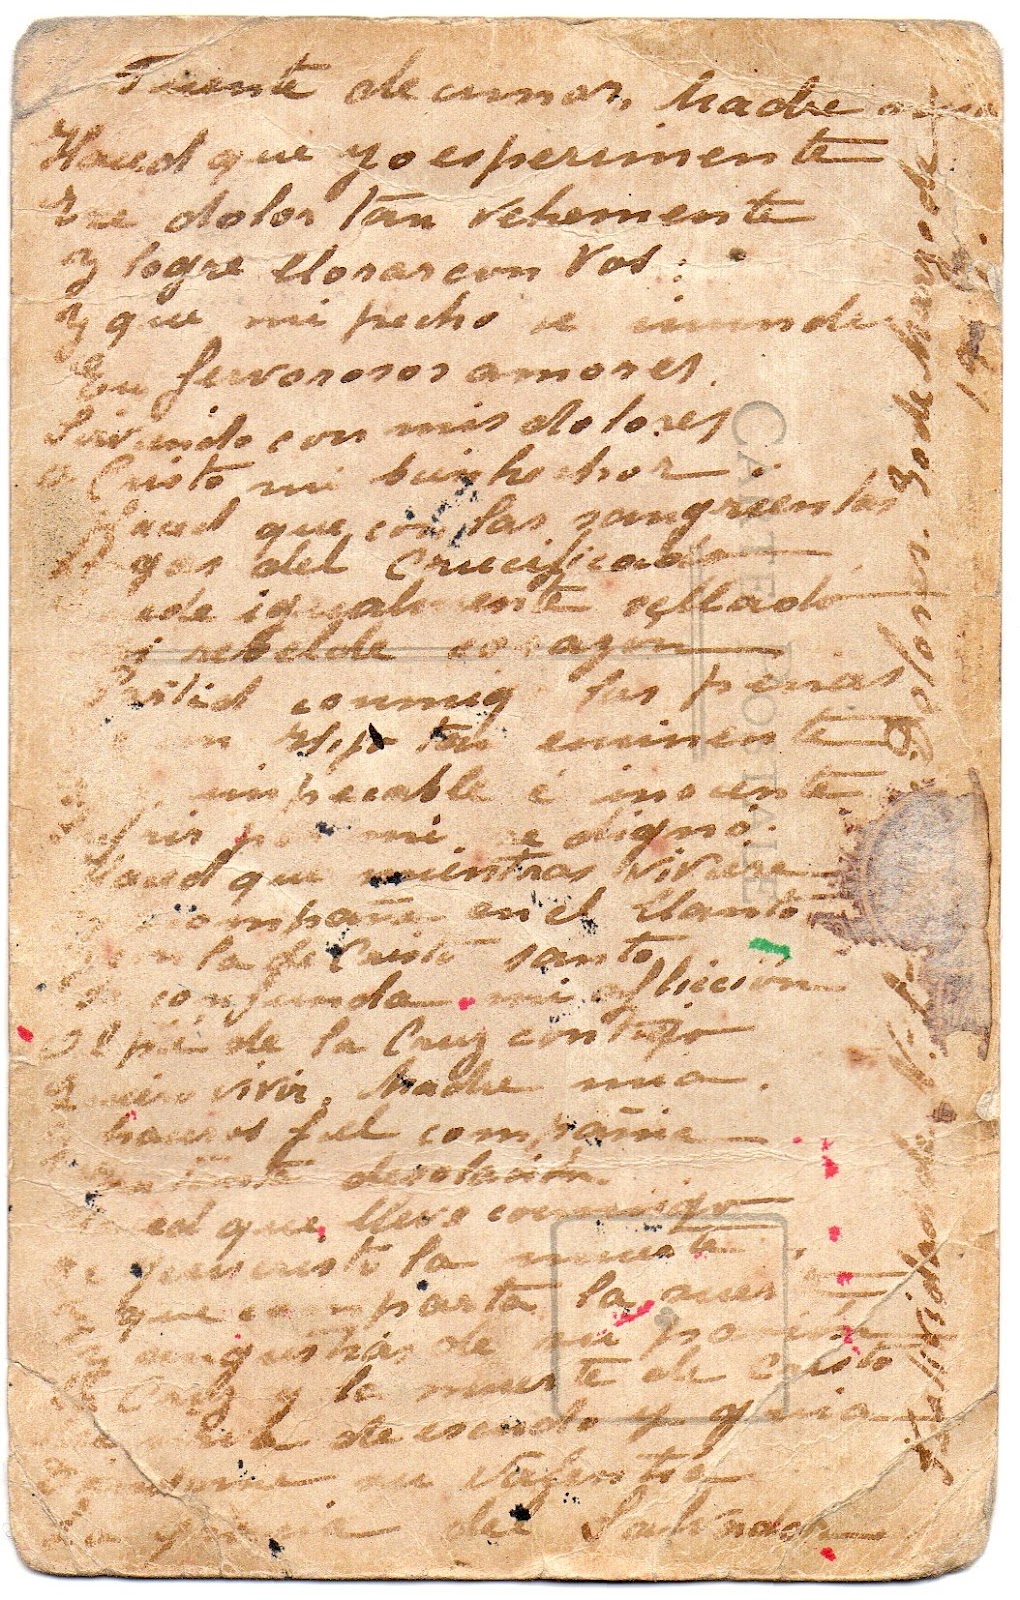 Fuente de amor, Madre
Haced que yo esperimente
Ese dolor tan vehemente
y logre llorar con Vos:
y que mi pecho se inunde
En fervorosos amores.
Sirviendo con mis dolores
a Cristo mi bienhechor.
Haced que con las sangrientas
del Crucificado
igualmente sellado
mi rebelde corazon
Partid conmig las penas
un Hijo tan eminente
impecable é inocente
por mi se dignó.
Haced que mientras Viviere
compañe en el llanto
y con la de Cristo santo
Se confunda mi afliccion
Al pié de la Cruz contigo
Quiero vivir, Madre mia.
y haceros fiel compañia
desolación.
que lleve conmigo
De Jesucristo la muerte.
y que comparta la
y angustias de su
La Cruz y la muerte de Cristo
de escudo y guia
su
La gracia del Salvador
Dolores. 30 de Marzo de
CARTE POSTALE